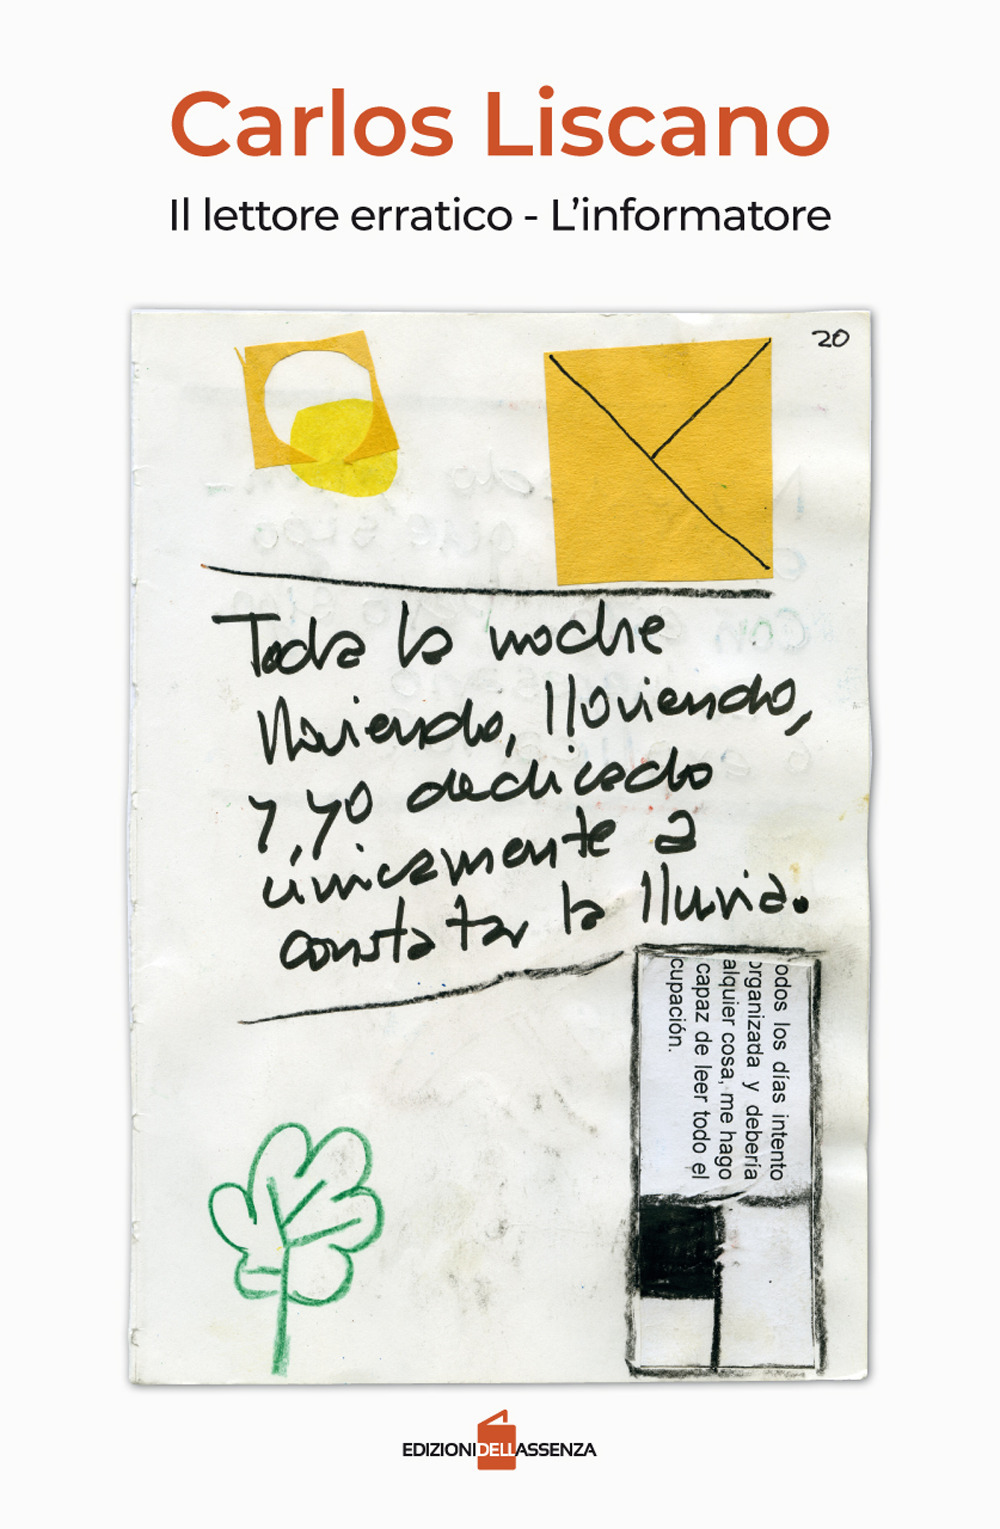 Carlos Liscano
Il lettore erratico - L’informatore
20
Toda la noche
lloviendo, lloviendo,
y yo dedicado
únicamente a
constatar la lluvia.
odos los días intento
organizada y debería
alquier cosa, me hago
capaz de leer todo el
cupación.
EDIZIONIDELL'ASSENZA